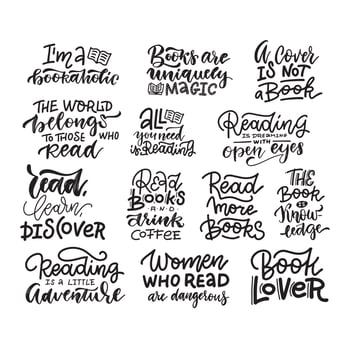 I'm a
bookaholic
Books are
uniquely
MAGIC
A COVER
IS NOT
a Book
THE WORLD
belongs
TO THOSE WHO
Read
all
you need
is Reading
Reading
IS DREAMING
WITH
open eyes
read,
learn,
DISCOVER
Read
BOOKS
AND
drink
COFFEE
Read
more
Books
THE
Book
is
Know-
ledge
Reading
IS A LITTLE
Adventure
Women
WHO READ
are dangerous
Book
LOVER